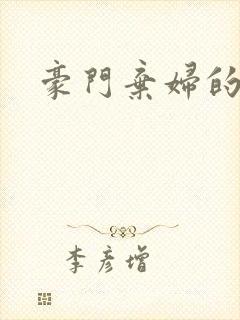 豪門棄婦的
李彥增